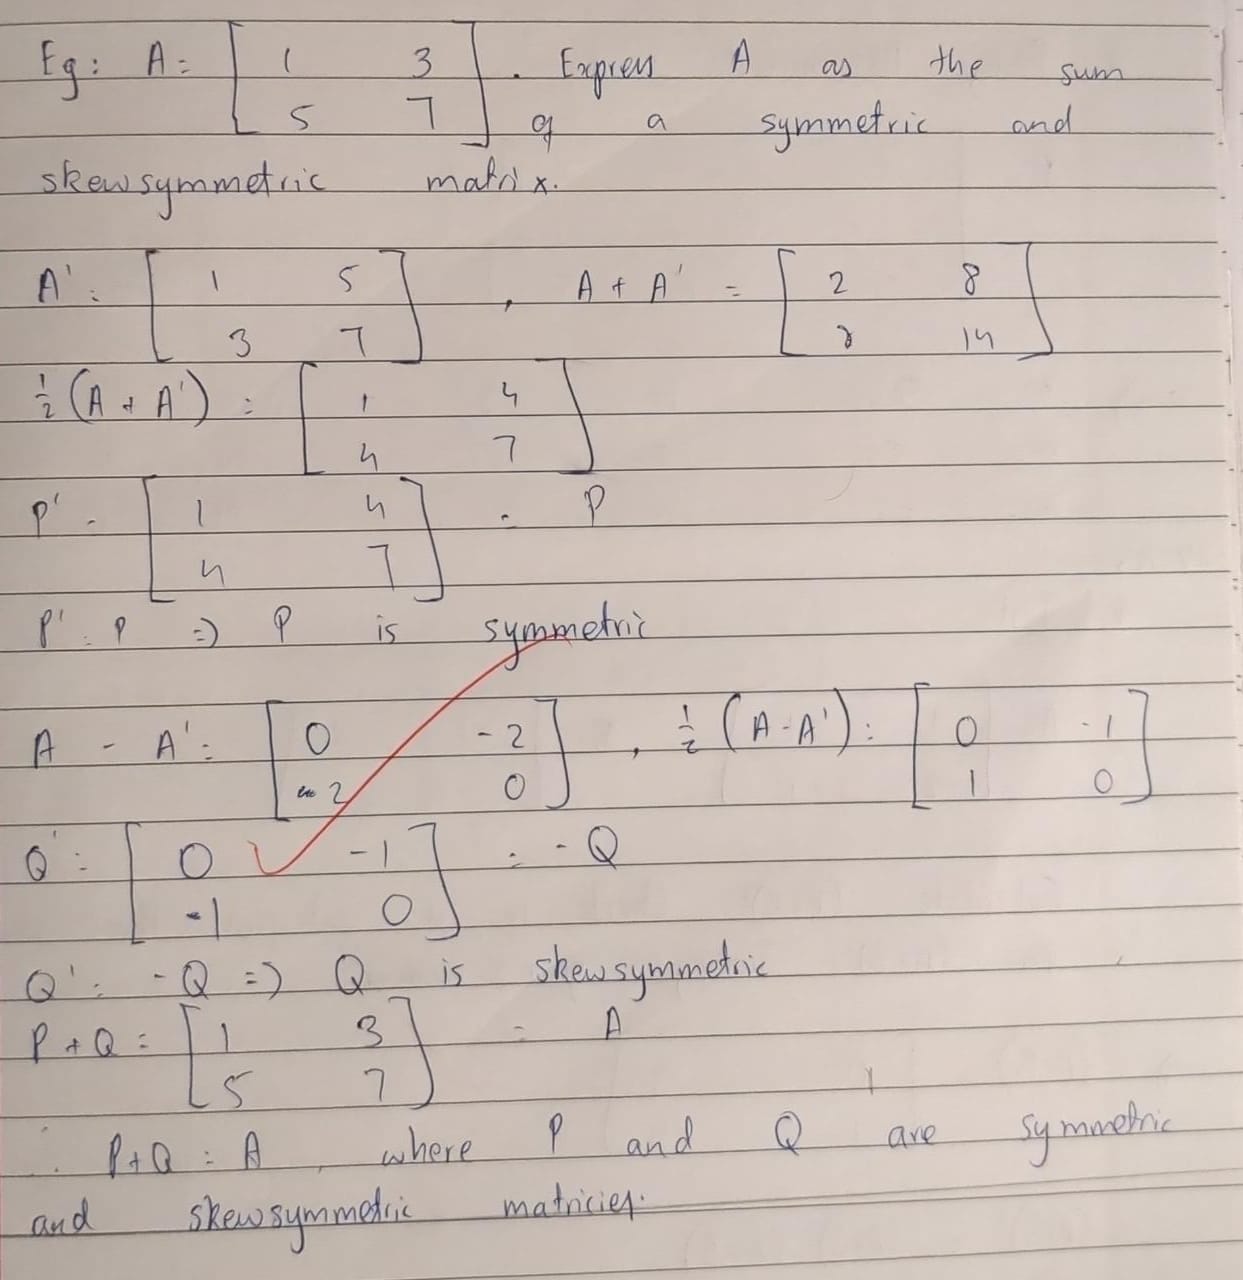 Eg: A = [ 1 3 ] . Express A as the sum
[ 5 7 ] of a symmetric and
skewsymmetric matrix.
A' = [ 1 5 ] , A + A' = [ 2 8 ]
[ 3 7 ] [ 8 14 ]
½ (A + A') = [ 1 4 ]
[ 4 7 ]
P' = [ 1 4 ] = P
[ 4 7 ]
P' = P => P is symmetric
A - A' = [ 0 -2 ] , ½ (A - A') = [ 0 -1 ]
[ 2 0 ] [ 1 0 ]
Q' = [ 0 -1 ] = -Q
[ -1 0 ]
Q' = -Q => Q is skewsymmetric
P + Q = [ 1 3 ] = A
[ 5 7 ]
∴ P + Q = A , where P and Q are symmetric
and skewsymmetric matricies.